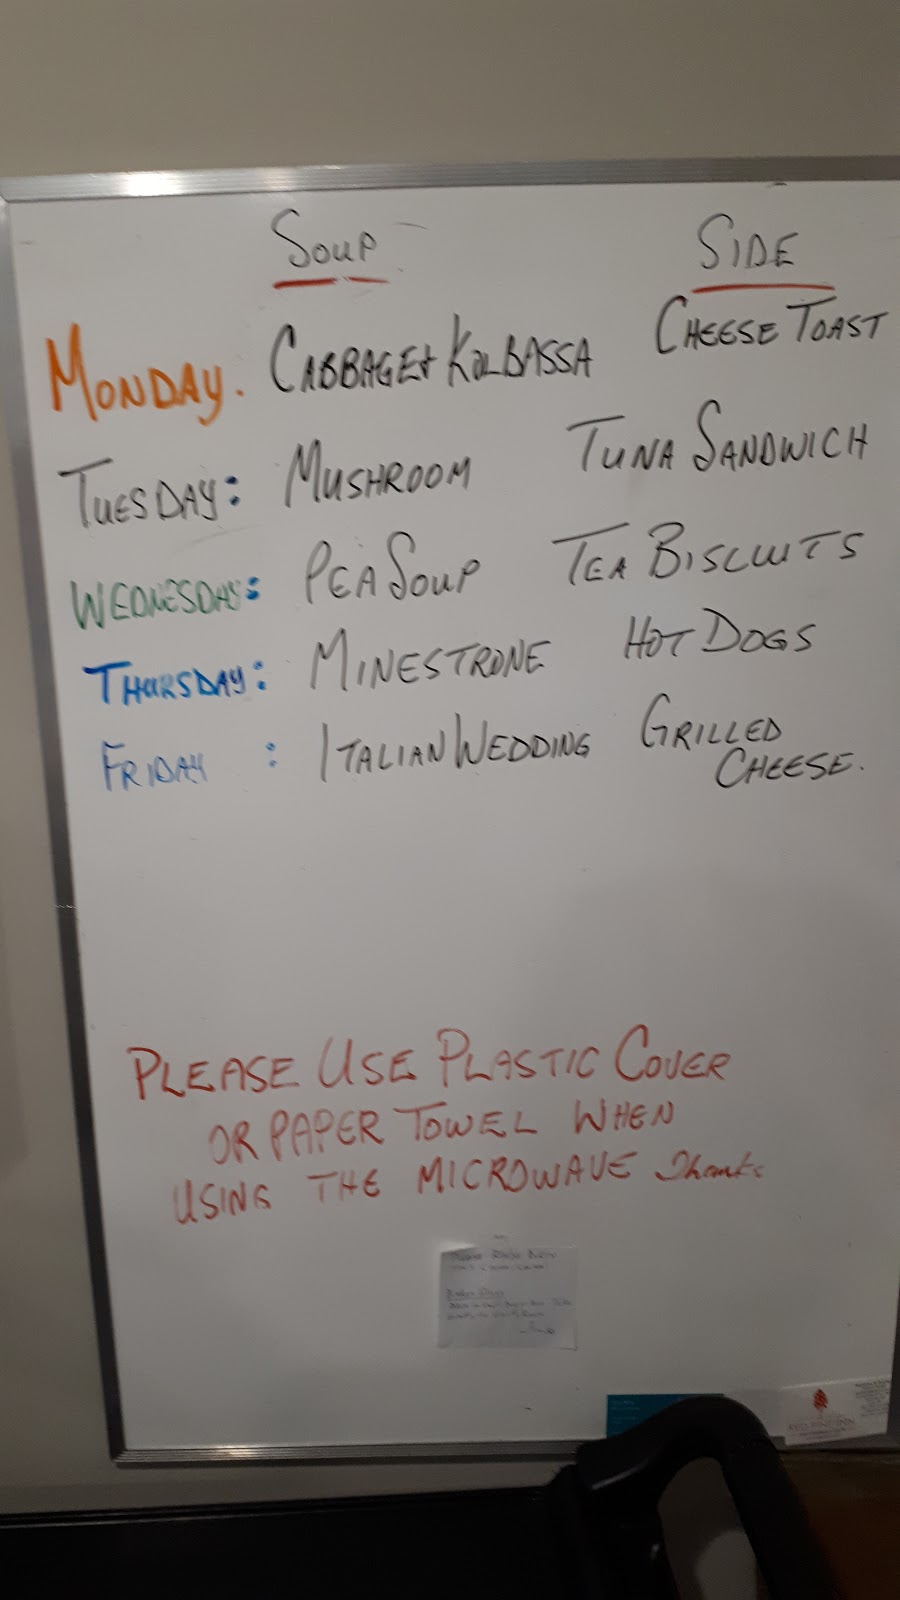 SOUP SIDE
MONDAY. CABBAGE+ KOLBASSA CHEESE TOAST
TUESDAY: MUSHROOM TUNA SANDWICH
WEDNESDAY: PEA SOUP TEA BISCUITS
THURSDAY: MINESTRONE HOT DOGS
FRIDAY : ITALIAN WEDDING GRILLED
CHEESE.
PLEASE USE PLASTIC COVER
OR PAPER TOWEL WHEN
USING THE MICROWAVE Thanks